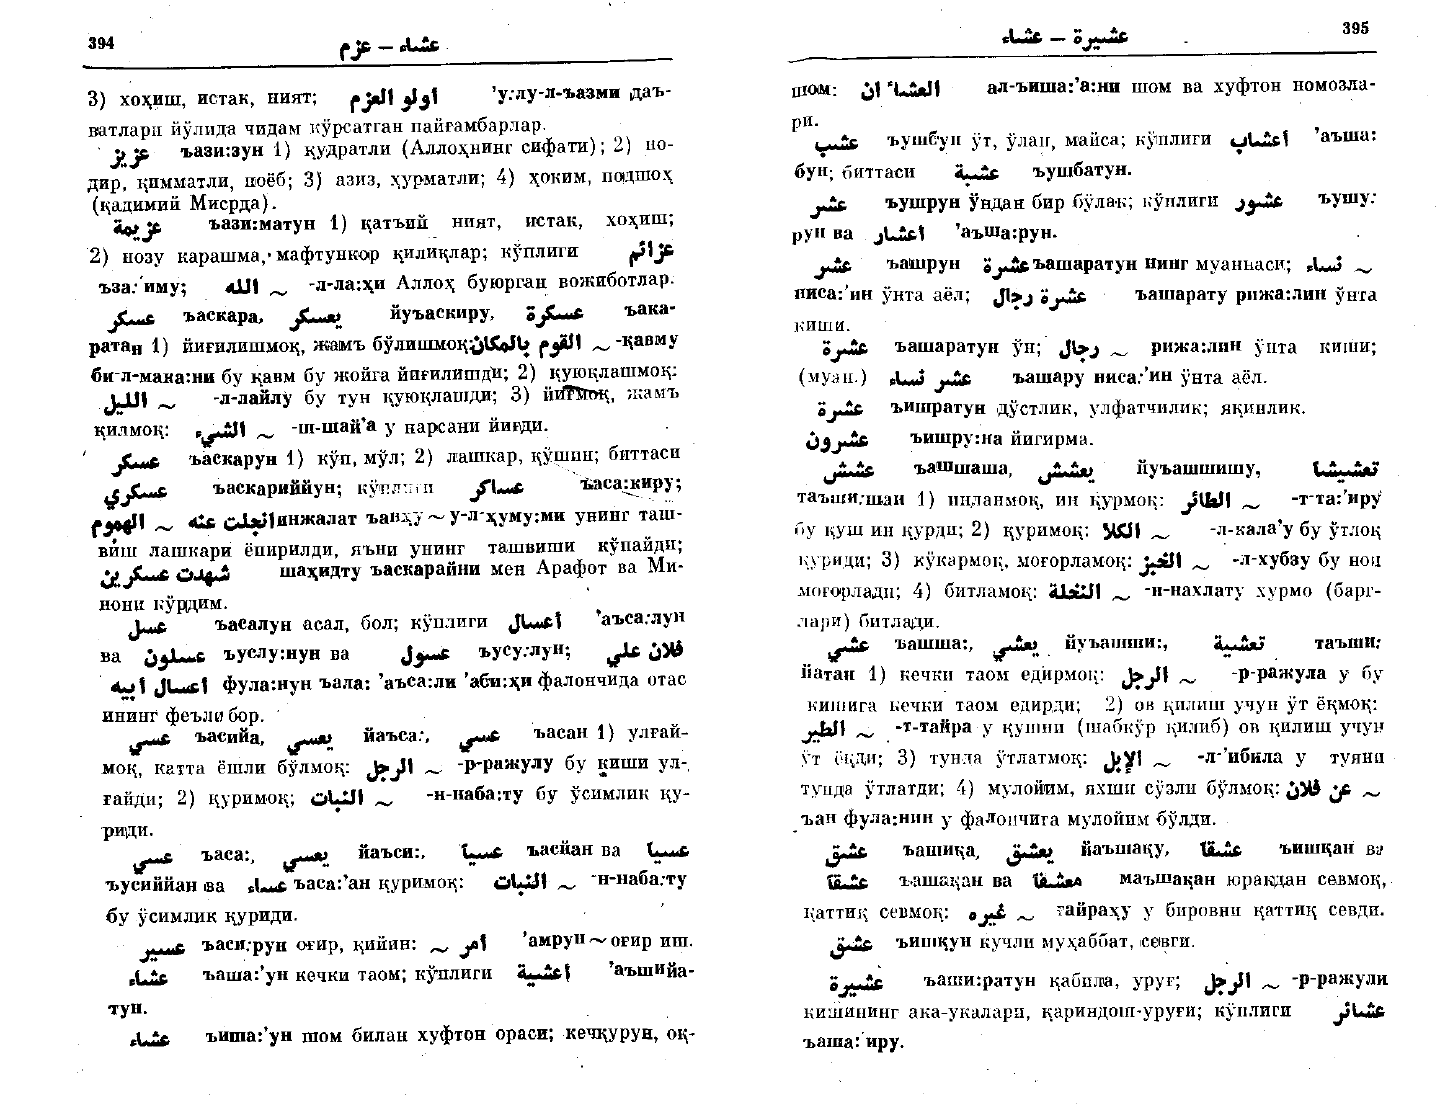 394
عشاء — عزم
3) хоҳиш, истак, ният; اولو العزم ’у:лу-л-ъазми даъ-
ватлари йўлида чидам кўрсатган пайғамбарлар.
عزيز ъази:зун 1) қудратли (Аллоҳнинг сифати); 2) но-
дир, қимматли, ноёб; 3) азиз, ҳурматли; 4) ҳоким, подшоҳ
(қадимий Мисрда).
عزيمة ъази:матун 1) қатъий ният, истак, хоҳиш;
2) нозу карашма, мафтункор қилиқлар; кўплиги عزائم
ъаза:’иму; الله ~ -л-ла:ҳи Аллоҳ буюрган вожиботлар.
عسكر ъаскара, يعسكر йуъаскиру, عسكرة ъака-
ратан 1) йиғилишмоқ, жамъ бўлишмоқ: القوم بالمكان ~ -қавму
би-л-мака:ни бу қавм бу жойга йиғилишди; 2) қуюқлашмоқ:
الليل ~ -л-лайлу бу тун қуюқлашди; 3) йиғмоқ, жамъ
қилмоқ: الشيء ~ -ш-шай’а у нарсани йиғди.
عسكر ъаскарун 1) кўп, мўл; 2) лашкар, қўшин; биттаси
عسكري ъаскариййун; кўплиги عساكر ъаса:киру;
انجلت عنه ~ الهموم инжалат ъанҳу ~ у-л-ҳуму:ми унинг таш-
виш лашкари ёпирилди, яъни унинг ташвиши кўпайди;
شهدت عسكرين шаҳидту ъаскарайни мен Арафот ва Ми-
нони кўрдим.
عسل ъасалун асал, бол; кўплиги أعسال ’аъса:лун
ва عسلون ъуслу:нун ва عسول ъусу:лун; فلان علي
أعسال أبيه фула:нун ъала: ’аъса:ли ’аби:ҳи фалончида отас
ининг феъли бор.
عسي ъасийа, يعسي йаъса:, عسي ъасан 1) улғай-
моқ, катта ёшли бўлмоқ: الرجل ~ -р-ражулу бу киши ул-
ғайди; 2) қуримоқ; النبات ~ -н-наба:ту бу ўсимлик қу-
риди.
عسي ъаса:, يعسي йаъси:, عسيا ъасйан ва عسيا
ъусиййан ва عساء ъаса:’ан қуримоқ: النبات ~ -н-наба:ту
бу ўсимлик қуриди.
عسير ъаси:рун оғир, қийин: ~ أمر ’амрун ~ оғир иш.
عشاء ъаша:’ун кечки таом; кўплиги أعشية ’аъшийа-
тун.
عشاء ъиша:’ун шом билан хуфтон ораси; кечқурун, оқ-
395
عشيرة — عشاء
шом: العشاءان ал-ъиша:’а:ни шом ва хуфтон номозла-
ри.
عشب ъушбун ўт, ўлан, майса; кўплиги أعشاب ’аъша:
бун; биттаси عشبة ъушбатун.
عشر ъушрун ўндан бир бўлак; кўплиги عشور ъушу:
рун ва أعشار ’аъша:рун.
عشر ъашрун عشرة ъашаратун нинг муаннаси; نساء ~
ниса:’ин ўнта аёл; عشرة رجال ъашарату рижа:лин ўнта
киши.
عشرة ъашаратун ўн; رجال ~ рижа:лин ўнта киши;
(муан.) عشر نساء ъашару ниса:’ин ўнта аёл.
عشرة ъишратун дўстлик, улфатчилик; яқинлик.
عشرون ъишру:на йигирма.
عشش ъашшаша, يعشش йуъашшишу, تعشيشا
таъши:шан 1) инланмоқ, ин қурмоқ: الطائر ~ -т-та:’иру
бу қуш ин қурди; 2) қуримоқ: الكلأ ~ -л-кала’у бу ўтлоқ
қуриди; 3) кўкармоқ, моғорламоқ: الخبز ~ -л-хубзу бу нон
моғорлади; 4) битламоқ: النخلة ~ -н-нахлату хурмо (барг-
лари) битлади.
عشي ъашша:, يعشي йуъашши:, تعشية таъши:
йатан 1) кечки таом едирмоқ: الرجل ~ -р-ражула у бу
кишига кечки таом едирди; 2) ов қилиш учун ўт ёқмоқ:
الطير ~ -т-тайра у қушни (шабкўр қилиб) ов қилиш учун
ўт ёқди; 3) тунда ўтлатмоқ: الإبل ~ -л-’ибила у туяни
тунда ўтлатди; 4) мулойим, яхши сўзли бўлмоқ: عن فلان ~
ъан фула:нин у фалончига мулойим бўлди.
عشق ъашиқа, يعشق йаъшақу, عشقا ъишқан ва
عشقا ъашақан ва معشقا маъшақан юракдан севмоқ,
қаттиқ севмоқ: غيره ~ ғайраҳу у бировни қаттиқ севди.
عشق ъишқун кучли муҳаббат, севги.
عشيرة ъаши:ратун қабила, уруғ; الرجل ~ -р-ражули
кишининг ака-укалари, қариндош-уруғи; кўплиги عشائر
ъаша:’иру.